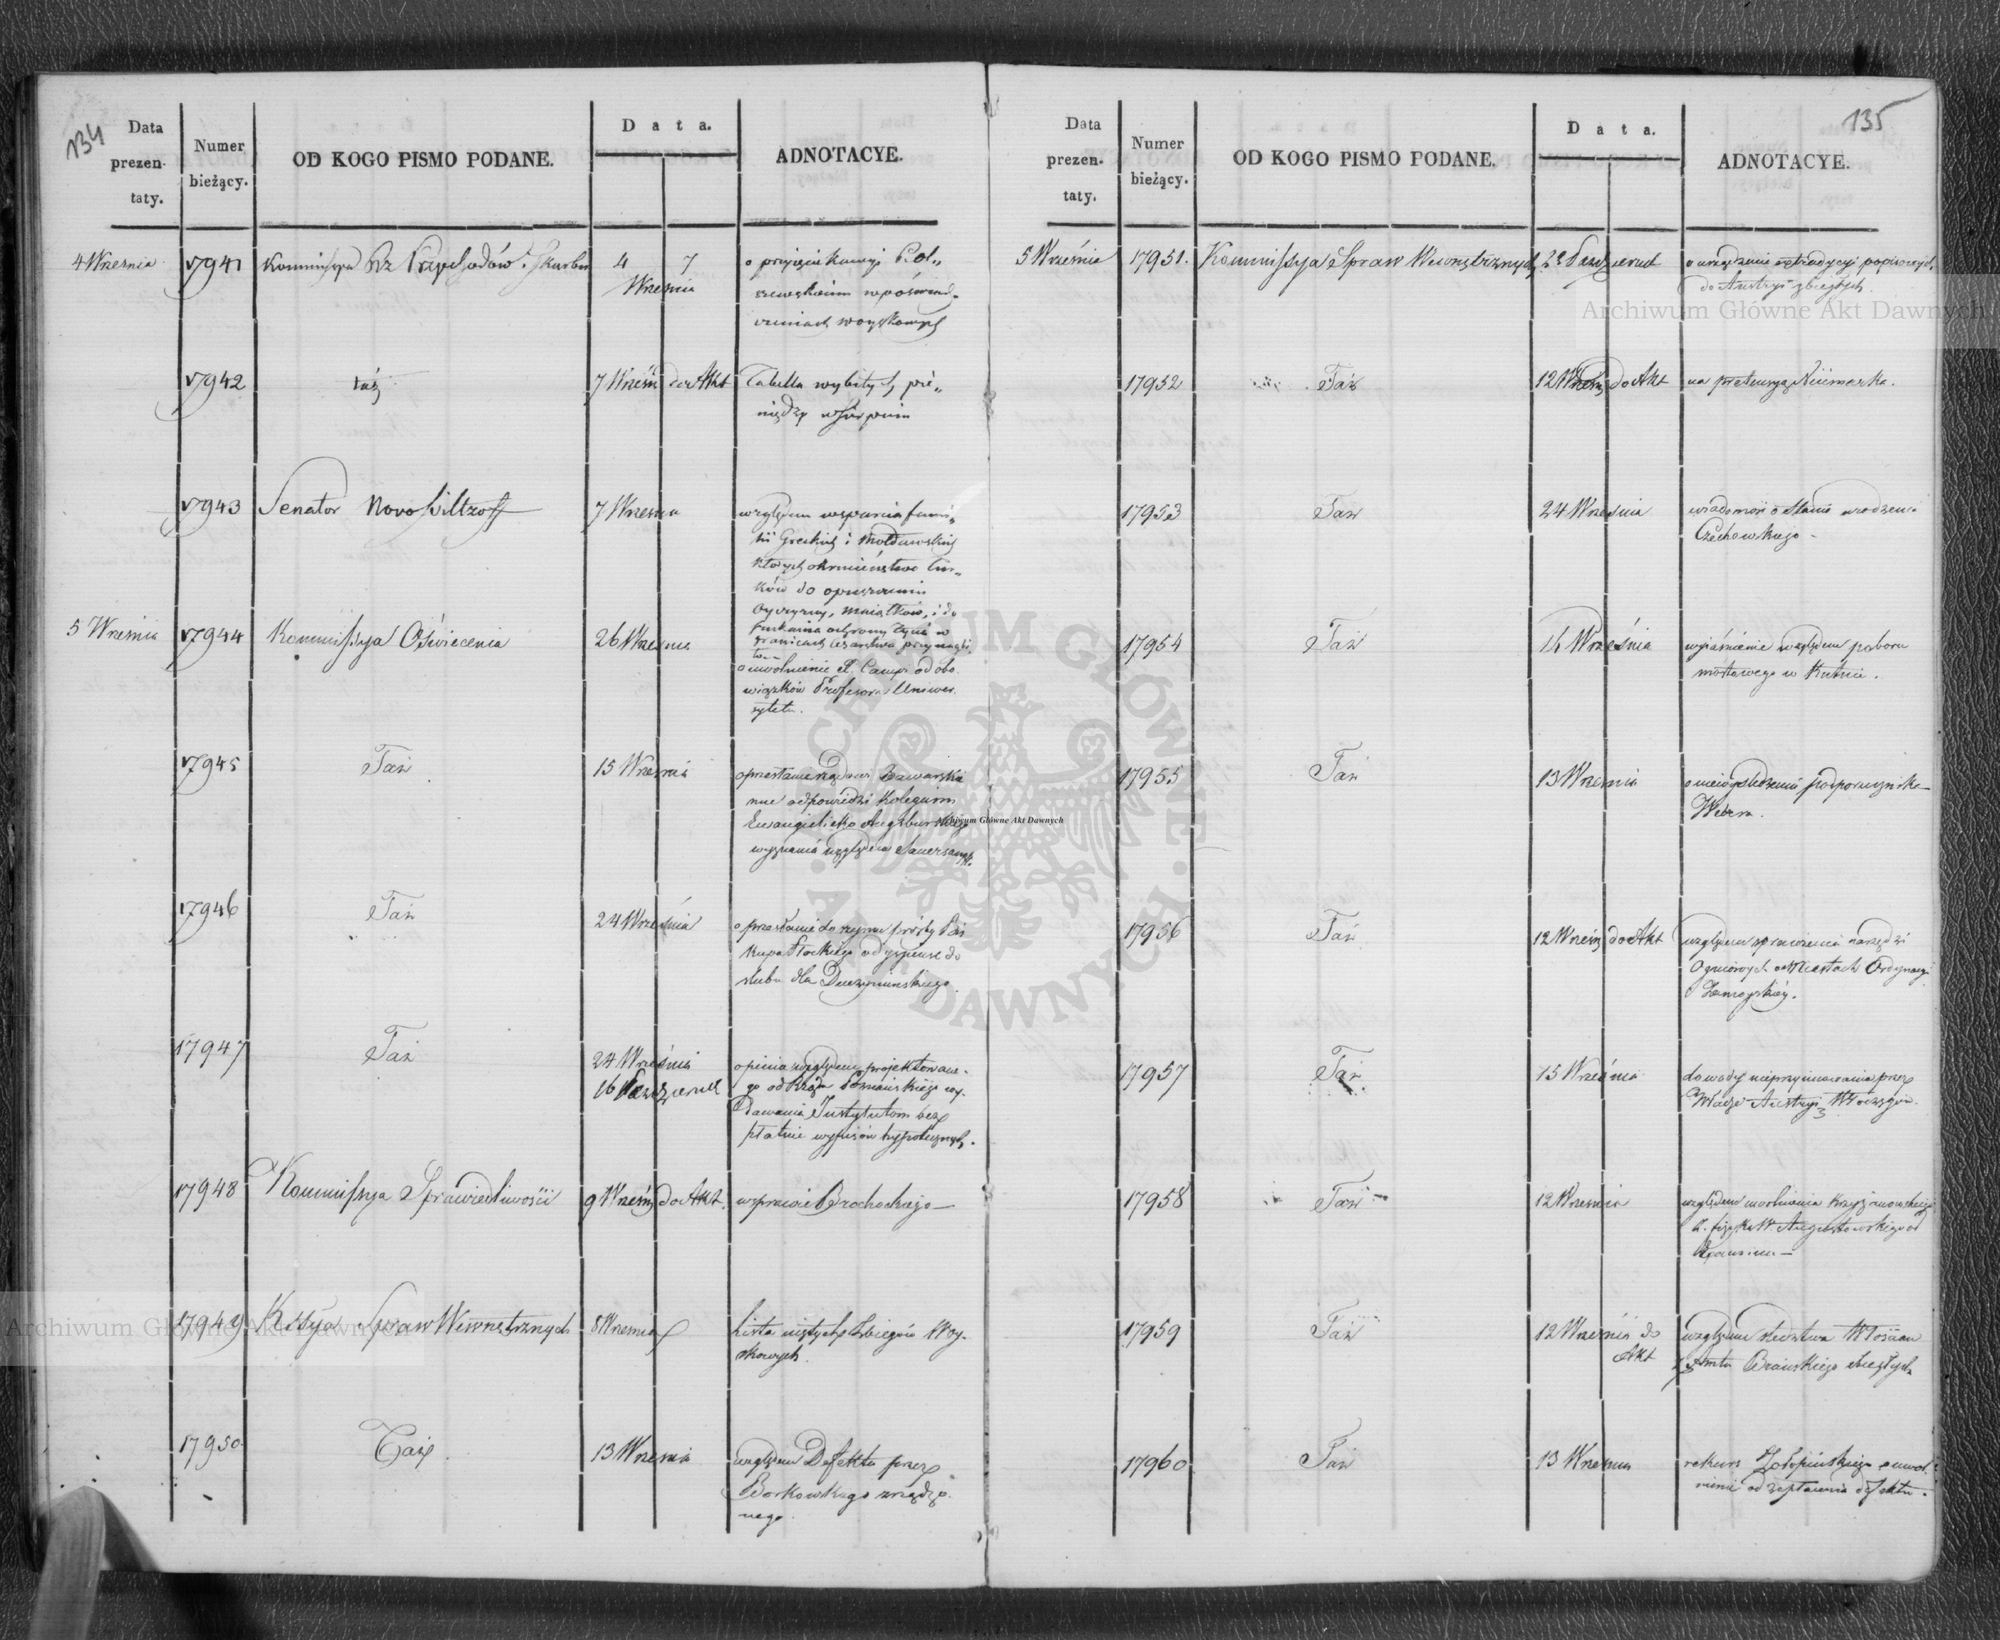 134
Data prezentaty.
Numer bieżący.
OD KOGO PISMO PODANE.
Data.
ADNOTACYE.
4 Września
17941
Kommissya Rz Przychodów i Skarbu
4 7
Września
o przyięcie
woyskowych
17942
taż
7 Wrześ do Akt
Tabella wybitych pie„
niędzy w Sierpniu
17943
Senator Novossiltzoff
7 Września
względem wsparcia fami„
lii Greckich i Mołdawskich
których okrucieństwo Tur„
ków do opuszczenia
Oyczyzny, maiątków, i do
szukania ochrony życia w
granicach Cesarstwa
5 Września
17944
Kommissya Oświecenia
26 Września
o uwolnienie P. Campi od obo
wiązków Profesora Uniwer
sytetu.
17945
Taż
15 Września
odpowiedzi Kolegium
Ewangelicko Augsburskiego
wyznania względem
17946
Taż
24 Września
o przesłanie do rzymu prośby Bis
kupa Płockiego o dyspensę do
ślubu dla
17947
Taż
24 Września
16 Październ
opinia względem projektowane„
go od Rządu wy„
dawania Instytutom bez„
płatnie wypisów hypotecznych.
17948
Kommissya Sprawiedliwości
9 Wrześ do Akt.
w sprawie Brochockiego —
17949
Kssya Spraw Wewnętrznych
8 Września
Lista zbiegów Woy„
skowych.
17950
Taż
13 Września
względem Defektu przez
Borkowskiego zrządzo„
nego.
135
Data prezentaty.
Numer bieżący.
OD KOGO PISMO PODANE.
Data.
ADNOTACYE.
5 Września
17951.
Kommissya Spraw Wewnętrznych
22 Październ
o urządzenie extradycyi popisowych
do Austryi zbiegłych.
17952
Taż
12 Wrześ do Akt
na pretensyą Neumarka.
17953
Taż
24 Września
wiadomość o stanie urodzenia
Czechowskiego —
17954
Taż
16 Września
wyiaśnienie względem poboru
mostowego w Kutnie.
17955
Taż
13 Września
podporucznika
Webera.
17956
Taż
12 Wrześ do Akt
względem sprawienia narzędzi
Ogniowych w Miastach Ordynacyi
Zamoyskiéy.
17957
Taż
15 Września
dowody nieprzyimowania przez
Władze Austryi Włóczęgów.
17958
Taż
12 Września
względem uwolnienia Krzyżanowskiego
W. Augustowskiego od
17959
Taż
12 Września do
Akt
względem śledztwa Włościan
zbiegłych
17960
Taż
13 Września
rekurs o uwol„
nienie od zapłacenia defektu.
Archiwum Główne Akt Dawnych
Archiwum Główne Akt Dawnych
Archiwum Główne Akt Dawnych
ARCHIWUM GŁÓWNE · AKT DAWNYCH ·